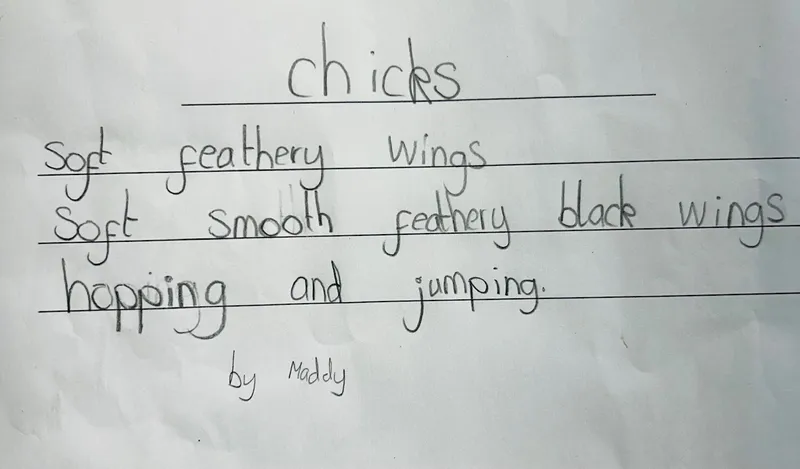 chicks
Soft feathery wings
Soft smooth feathery black wings
hopping and jumping.
by Maddy